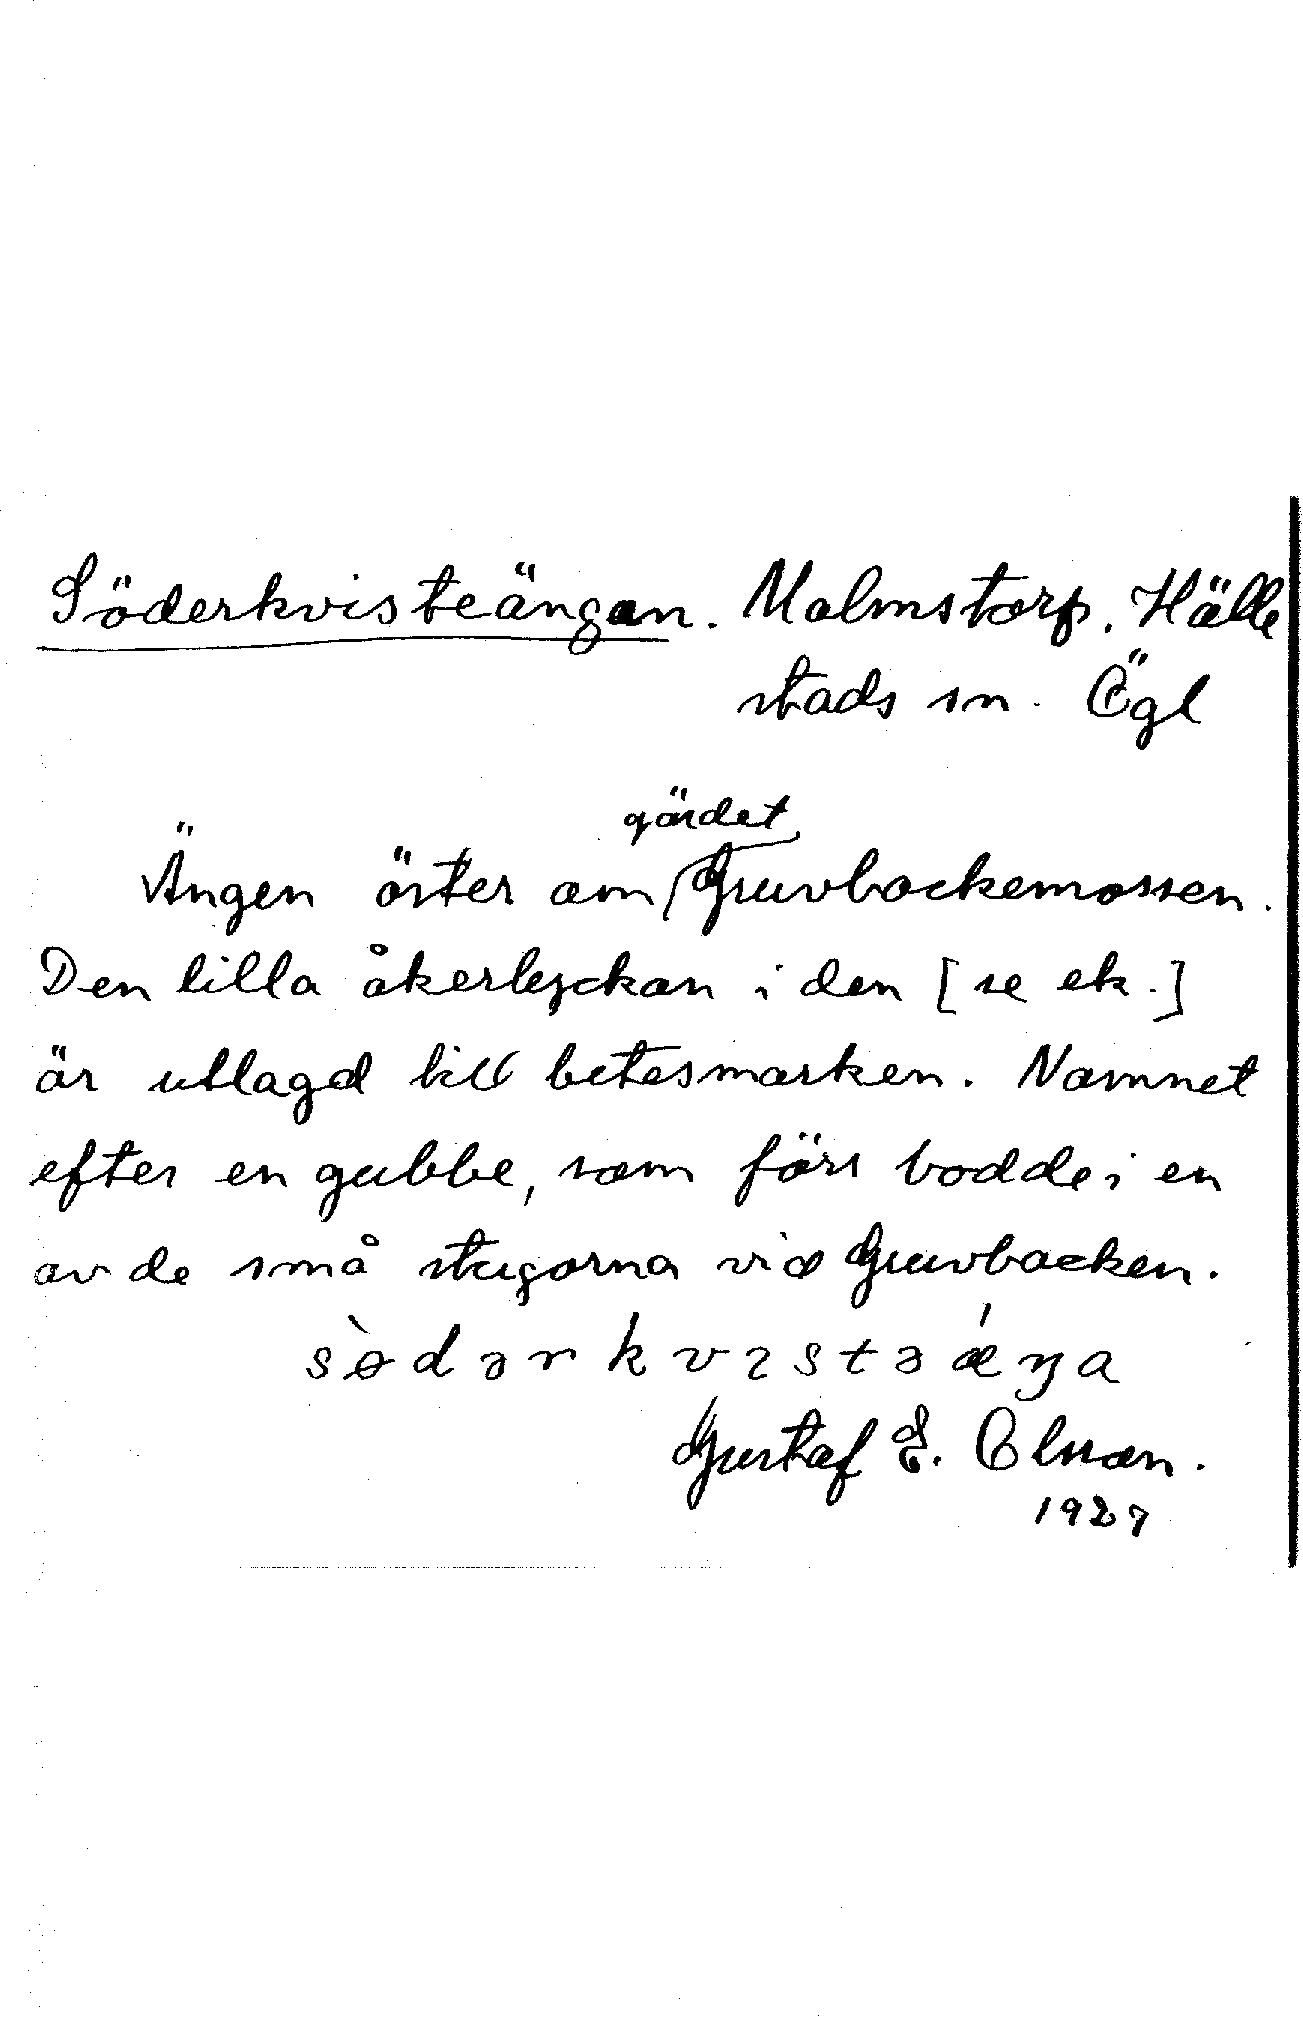 Söderkvisteängan. Malmstorp. Hälle
stads sn. Ögl
gärdet
Ängen öster om Gruvbackemossen.
Den lilla åkerlyckan i den [se ek.]
är utlagd till betesmarken. Namnet
efter en gubbe, som förr bodde i en
av de små stugorna vid Gruvbacken.
sø̀dərkvɪstəǽŋa
Gustaf E. Olsson.
1927